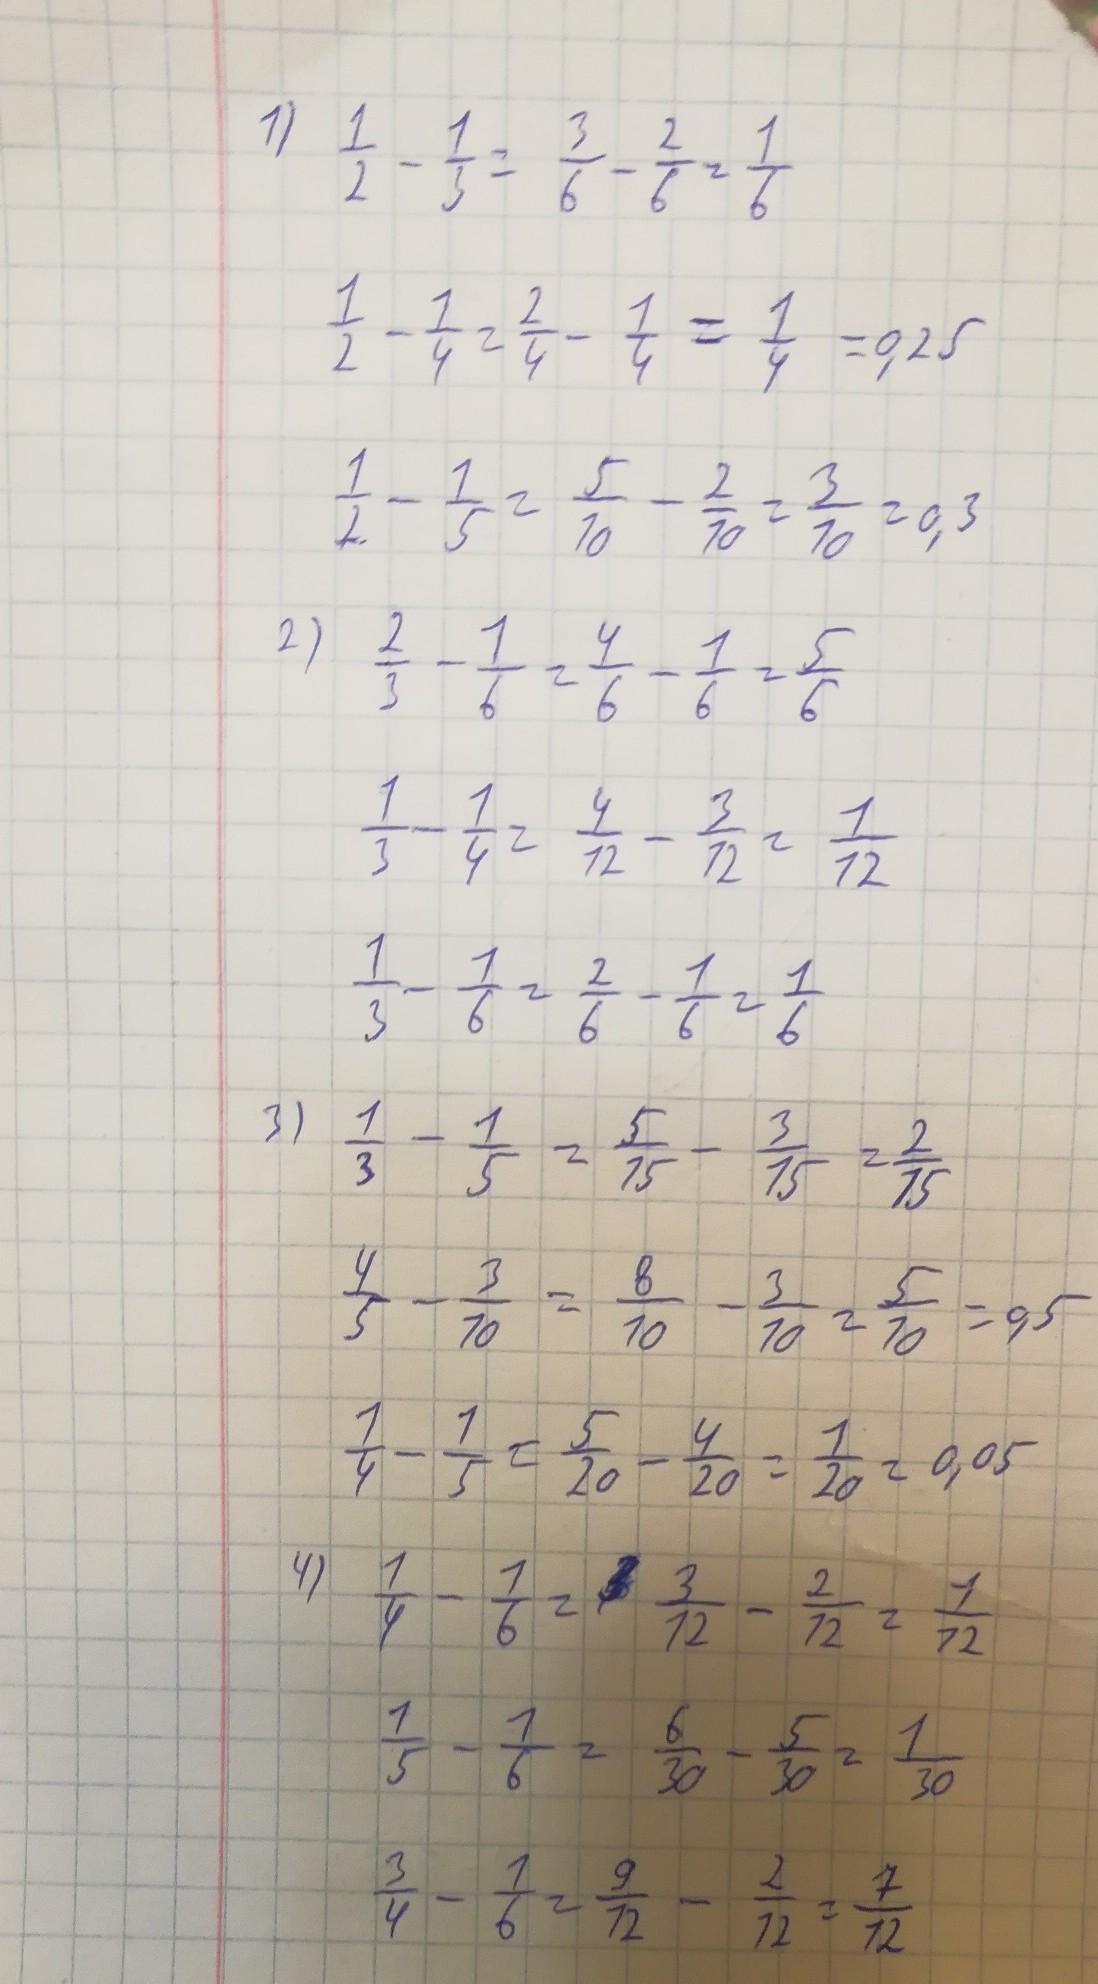 1) 1/2 - 1/3 = 3/6 - 2/6 = 1/6
1/2 - 1/4 = 2/4 - 1/4 = 1/4 = 0,25
1/2 - 1/5 = 5/10 - 2/10 = 3/10 = 0,3
2) 2/3 - 1/6 = 4/6 - 1/6 = 5/6
1/3 - 1/4 = 4/12 - 3/12 = 1/12
1/3 - 1/6 = 2/6 - 1/6 = 1/6
3) 1/3 - 1/5 = 5/15 - 3/15 = 2/15
4/5 - 3/10 = 8/10 - 3/10 = 5/10 = 0,5
1/4 - 1/5 = 5/20 - 4/20 = 1/20 = 0,05
4) 1/4 - 1/6 = 3/12 - 2/12 = 1/12
1/5 - 1/6 = 6/30 - 5/30 = 1/30
3/4 - 1/6 = 9/12 - 2/12 = 7/12